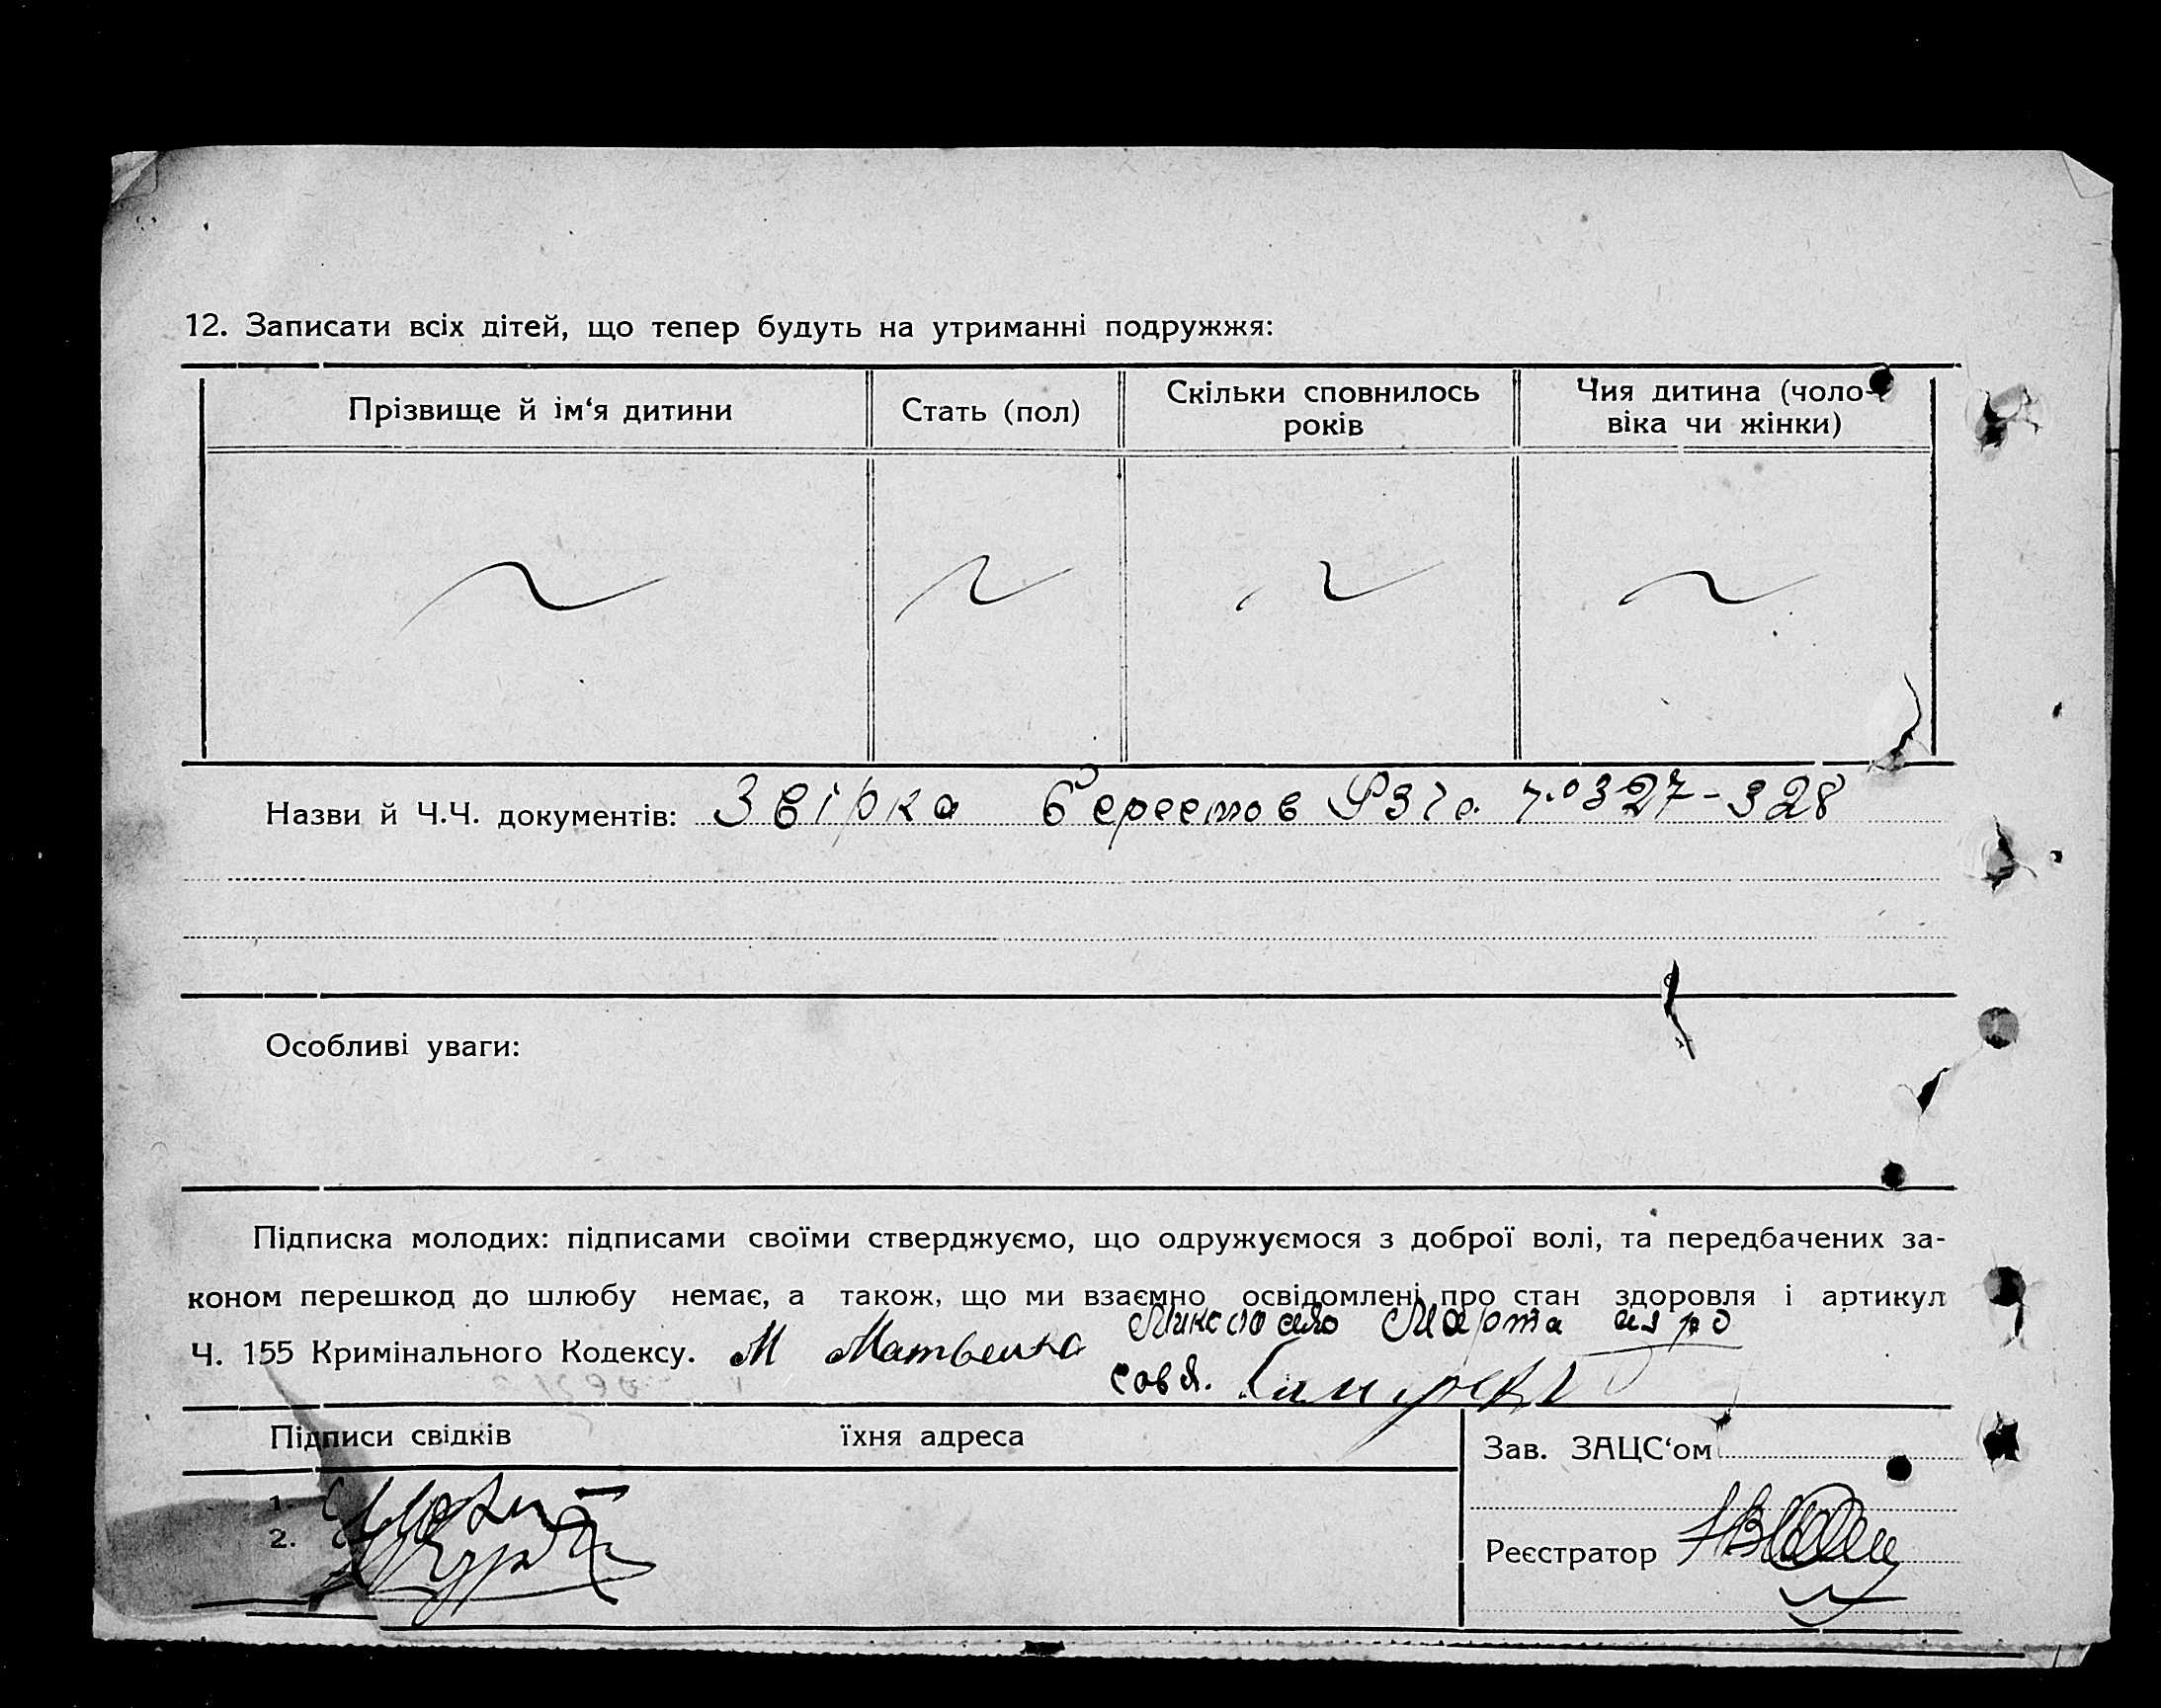 12. Записати всіх дітей, що тепер будуть на утриманні подружжя:
Прізвище й ім‘я дитини
Стать (пол)
Скільки сповнилось
років
Чия дитина (чоло-
віка чи жінки)
Назви й Ч.Ч. документів: Звірка 327-328
Особливі уваги:
Підписка молодих: підписами своїми стверджуємо, що одружуємося з доброї волі, та передбачених за-
коном перешкод до шлюбу немає, а також, що ми взаємно освідомлені про стан здоровля і артикул
Ч. 155 Кримінального Кодексу. М Матвенко Марта
Підписи свідків їхня адреса
Зав. ЗАЦС‘ом
1.
2.
Реєстратор